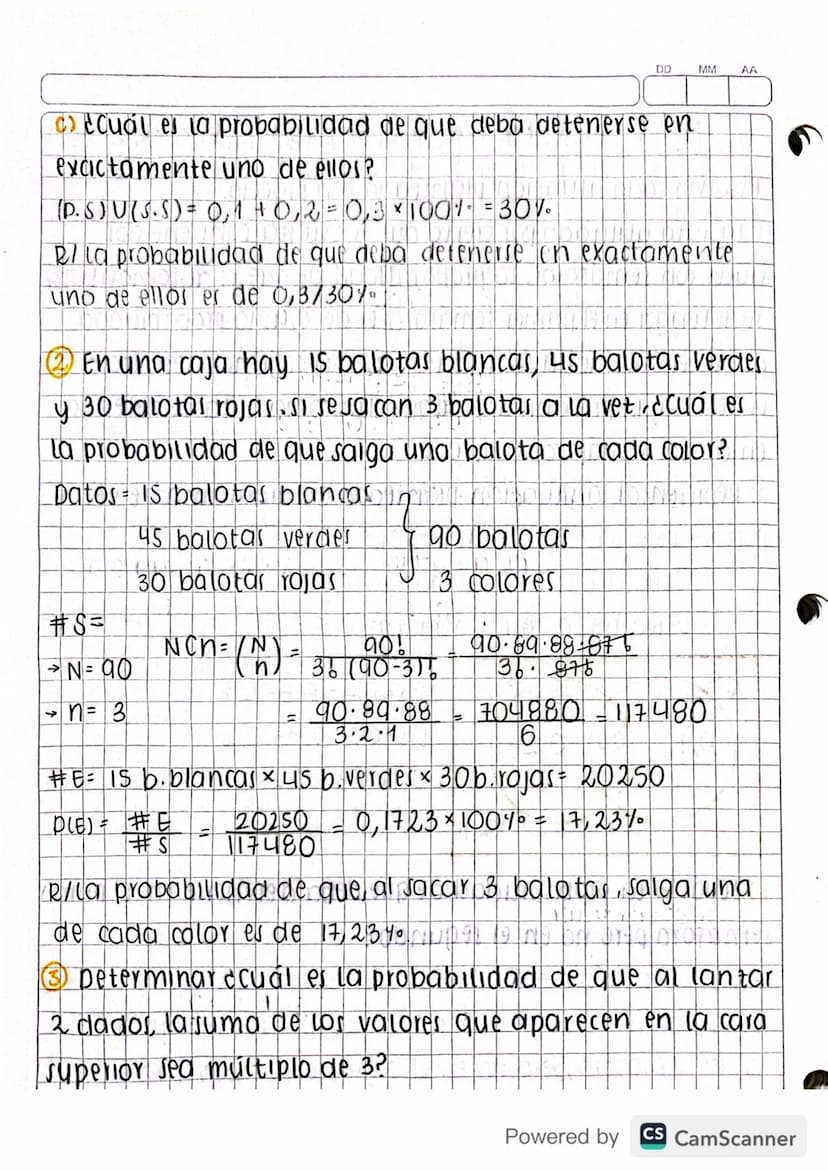 DD MM AA
c) ¿Cuál es la probabilidad de que deba detenerse en
exactamente uno de ellos?
(P.S)U(S.S)= 0,1 + 0,2 = 0,3 × 100% = 30%
R/ La probabilidad de que deba detenerse en exactamente
uno de ellos es de 0,3/30%
② En una caja hay 15 balotas blancas, 45 balotas verdes
y 30 balotas rojas. si se sacan 3 balotas a la vez, ¿Cuál es
la probabilidad de que salga una balota de cada color?
Datos = 15 balotas blancas
45 balotas verdes } 90 balotas
30 balotas rojas 3 colores
#S=
NCn= (N n) = 90! / 3!(90-3)! = 90·89·88·87! / 3!·87!
→ N= 90
→ n= 3 = 90·89·88 / 3·2·1 = 704880 / 6 = 117480
#E= 15 b.blancas × 45 b.verdes × 30 b.rojas = 20250
P(E) = #E / #S = 20250 / 117480 = 0,1723 × 100% = 17,23%
R/ La probabilidad de que, al sacar 3 balotas, salga una
de cada color es de 17,23%
③ Determinar ¿cuál es la probabilidad de que al lanzar
2 dados, la suma de los valores que aparecen en la cara
superior sea múltiplo de 3?
Powered by CS CamScanner